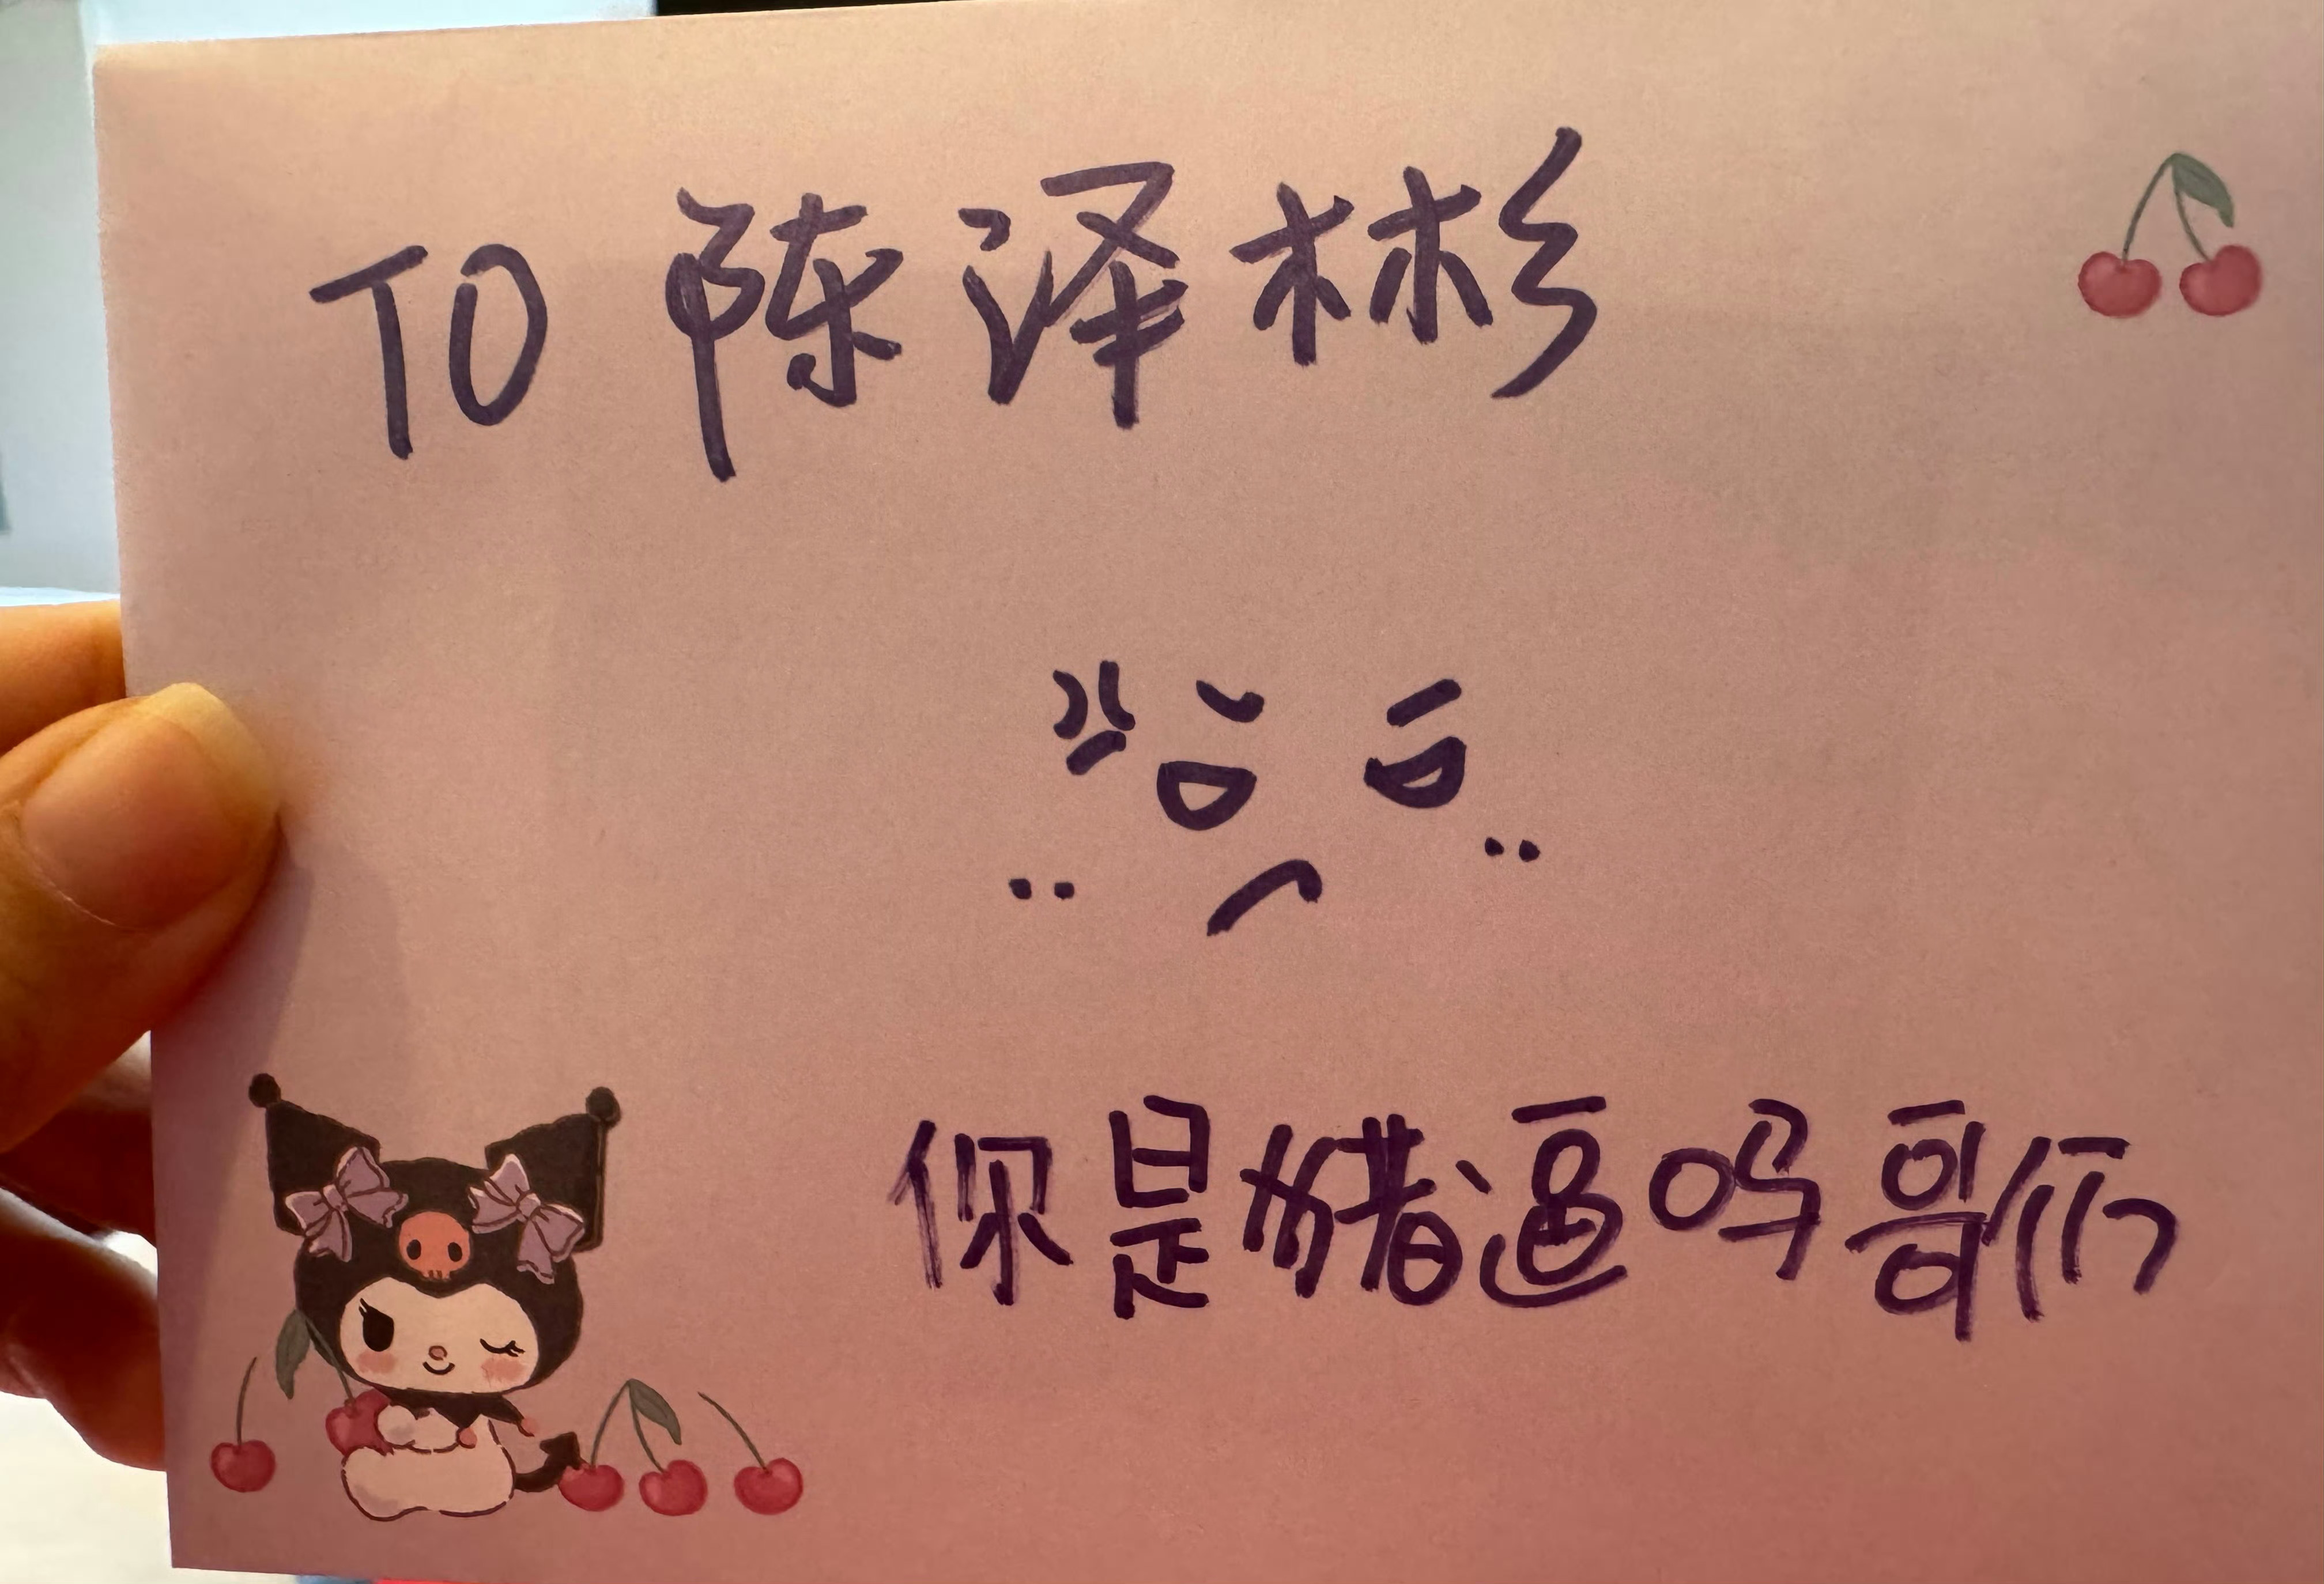 TO 陈泽彬
你是猪逼吗哥们